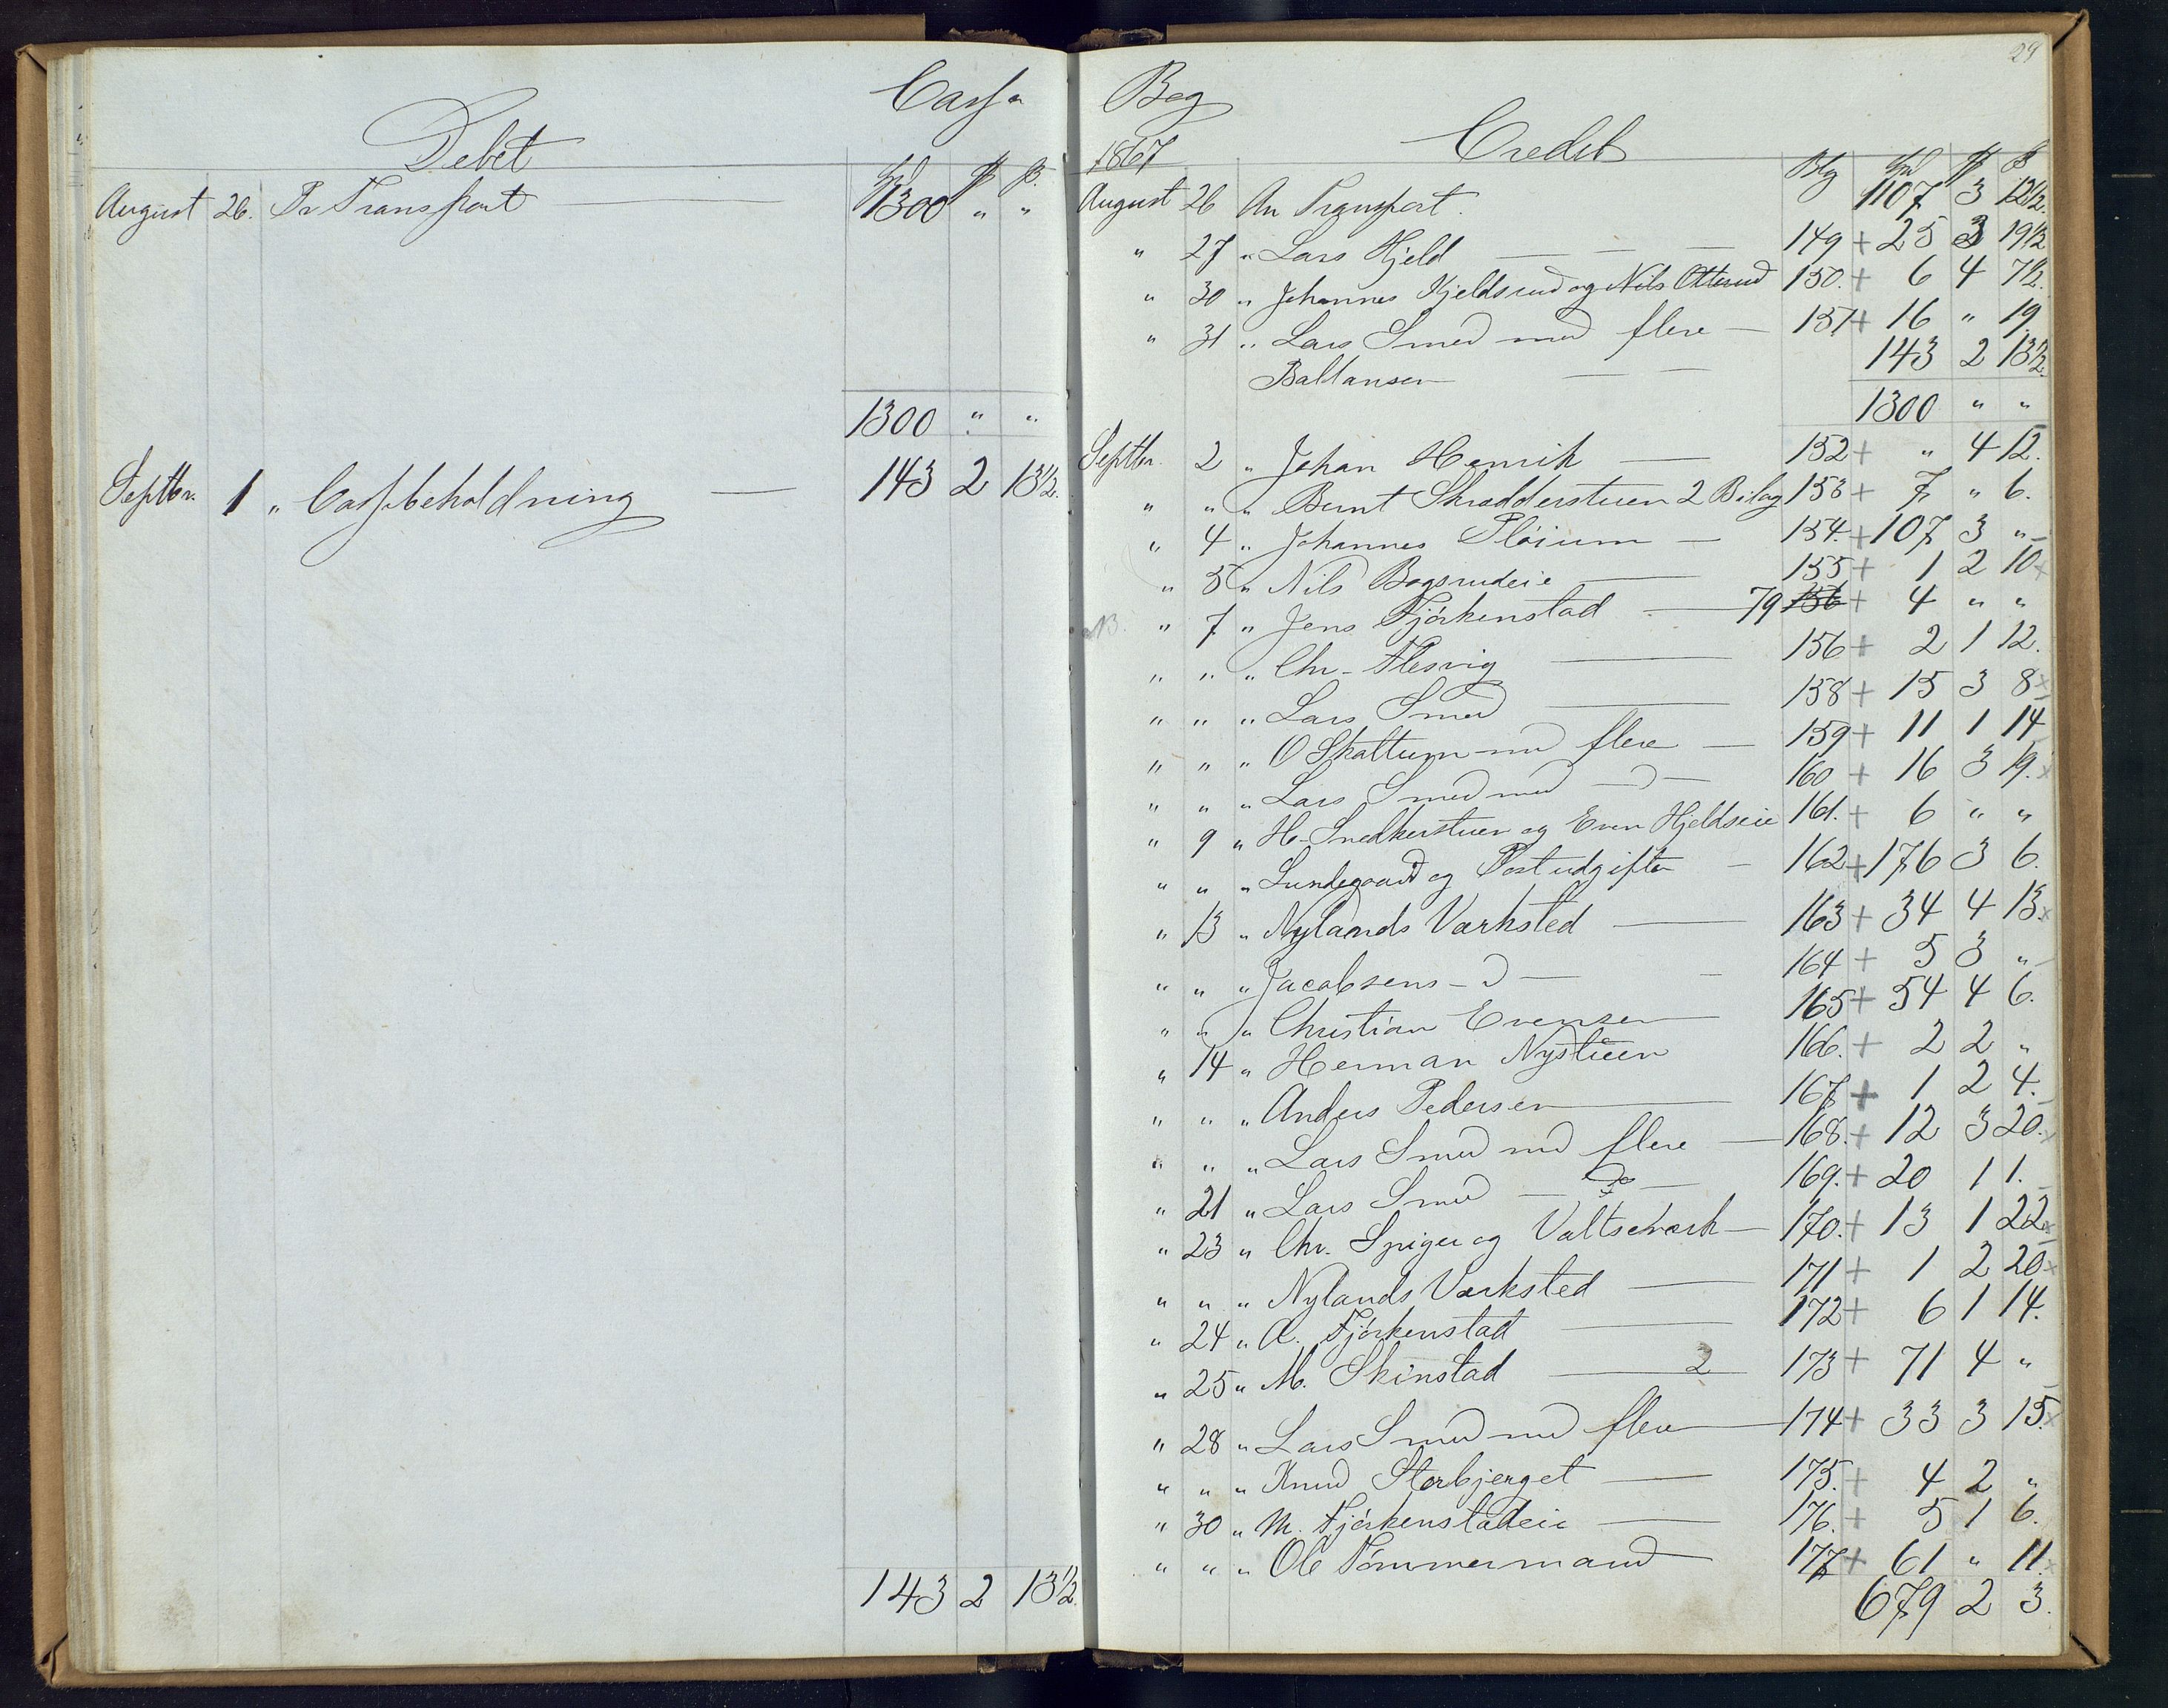 Cassa
Debet
Spd ₰ ß.
August 26. Pr Transport 1300 " "
1300 " "
Septbr. 1 " Cassabeholdning 143 2 13½.
143 2 13½.
29
Bog
1867 Credit
Blg Spd ₰ ß
August 26 An Transport. 1107 3 12½.
" 27 " Lars Hjeld 149 + 25 3 19½
" 30 " Johannes Kjeldsrud og Nils Otterud 150. + 6 4 7½.
" 31 " Lars Smed med flere 151 + 16 " 19
Ballansen 143 2 13½.
1300 " "
Septbr. 2 " Johan Henrik 152 + " 4 12.
" " " Bernt Skradderstuen 2 Bilag 153 + 7 " 6.
" 4 " Johannes Pløium 154. + 107 3 "
" 5 " Nils Bogsrudeie 155 + 1 2 10
NB. " 7 " Jens Fjørkenstad 79 156 + 4 " "
" " " Chr. Flesvig 156 + 2 1 12.
" " " Lars Smed 158 + 15 3 8
" " " O Skattum med flere 159 + 11 1 14
" " " Lars Smed med D 160 + 16 3 19.
" 9 " H. Snedkerstuen og Even Hjeldseie 161. + 6 " "
" " " Lundegaard og Postudgifter 162 + 176 3 6.
" 13 " Nylands Værksted 163 + 34 4 13.
" " " Jacobsens D 164 + 5 3 "
" " " Christian Evensen 165 + 54 4 6.
" 14 " Herman Nystuen 166. + 2 2 "
" " " Anders Pedersen 167 + 1 2 4.
" " " Lars Smed med flere 168. + 12 3 20.
" 21 " Lars Smed Do 169. + 20 1 1.
" 23 " Chr. Spiger og Valtseværk 170. + 13 1 22
" " " Nylands Værksted 171 + 1 2 20
" 24 " A. Fjørkenstad 172 + 6 1 14.
" 25 " M. Skinstad 2 173 + 71 4 "
" 28 " Lars Smed med flere 174 + 33 3 15.
" " " Knud Storbjerget 175. + 4 2 "
" 30 " M. Fjørkenstadeie 176. + 5 1 6.
" " " Ole Tømmermand 177 + 61 " 11.
679 2 3.